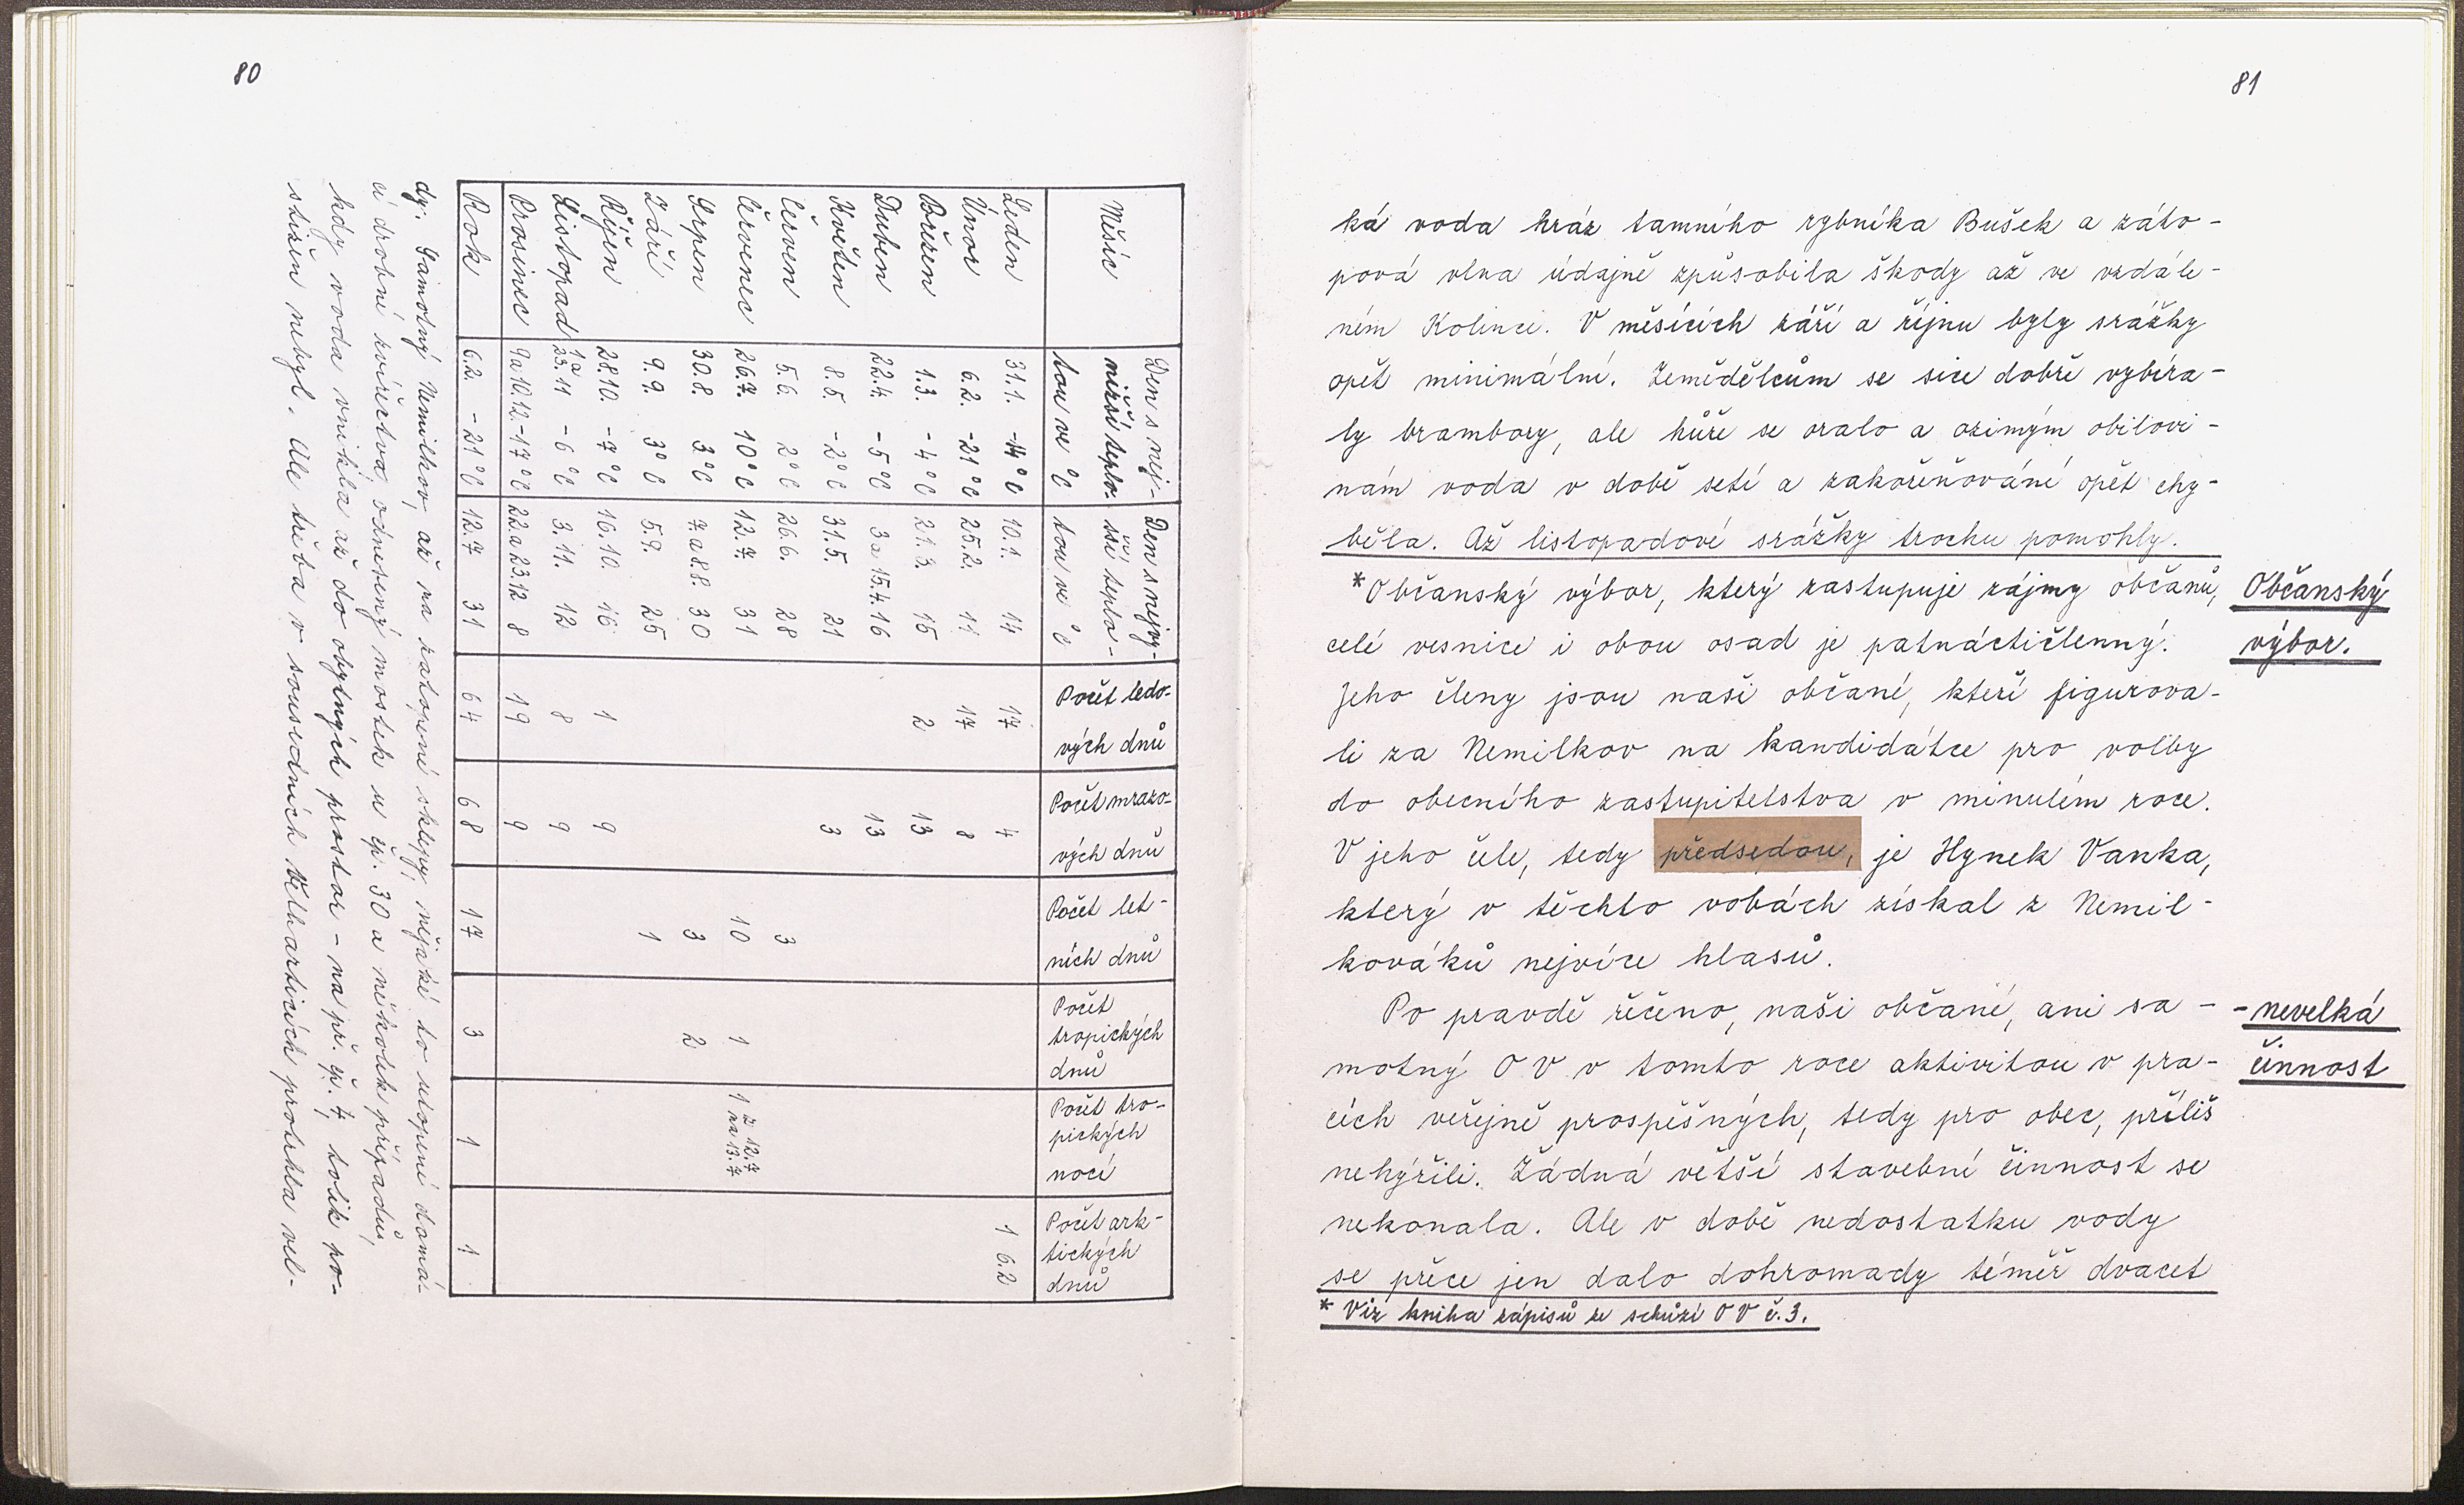 80
Měsíc | Den s nej-nižší teplo-tou ve °C | Den s nejvy-šší teplo-tou ve °C | Počet ledo-vých dnů | Počet mrazo-vých dnů | Počet let-ních dnů | Počet tropických dnů | Počet tro-pických nocí | Počet ark-tických dnů
Leden | 31.1. -14°C | 10.1. 14 | 17 | 4 | | | | 1 6.2
Únor | 6.2. -21°C | 25.2. 11 | 17 | 8
Březen | 1.3. -4°C | 21.3. 15 | 2 | 13
Duben | 22.4. -5°C | 3 a 15.4. 16 | | 13
Květen | 8.5. -2°C | 31.5. 21 | | 3
Červen | 5.6. 2°C | 26.6. 28 | | | 3
Červenec | 26.7. 10°C | 12.7. 31 | | | 10 | 1 | 1 z 12.7 na 13.7
Srpen | 30.8. 3°C | 7. a 8.8. 30 | | | 3 | 2
Září | 9.9. 3°C | 5.9. 25 | | | 1
Říjen | 28.10. -7°C | 16.10. 16 | 1 | 9
Listopad | 1 a 23.11 -6°C | 3.11. 12 | 8 | 9
Prosinec | 9 a 10.12. -17°C | 22 a 23.12 8 | 19 | 9
Rok | 6.2. -21°C | 12.7 31 | 64 | 68 | 17 | 3 | 1 | 1
dy. Samotný Nemilkov, až na zatopené sklepy, nějaké to utopení domá-
cí drobné zvířectva, odnesený mostek u čp. 30 a několik případů,
kdy voda vnikla až do obytných prostor - na př. čp. 7, tolik po-
stižen nebyl. Ale třeba v sousedních Velharticích protrhla vel-
81
ká voda hráz tamního rybníka Bušek a záto-
pová vlna údajně způsobila škody až ve vzdále-
ném Kolinci. V měsících září a říjnu byly srážky
opět minimální. Zemědělcům se sice dobře vybíra-
ly brambory, ale hůře se oralo a ozimým obilovi-
nám voda v době setí a zakořeňování opět chy-
běla. Až listopadové srážky trochu pomohly.
*Občanský výbor, který zastupuje zájmy občanů,
Občanský
výbor.
celé vesnice i obou osad je patnáctičlenný.
Jeho členy jsou naši občané, kteří figurova-
li za Nemilkov na kandidátce pro volby
do obecního zastupitelstva v minulém roce.
V jeho čele, tedy předsedou, je Hynek Vanka,
který v těchto vobách získal z Nemil-
kováků nejvíce hlasů.
Po pravdě řečeno, naši občané, ani sa-
- nevelká
činnost
motný OV v tomto roce aktivitou v pra-
cích veřejně prospěšných, tedy pro obec, příliš
nehýřili. Žádná větší stavební činnost se
nekonala. Ale v době nedostatku vody
se přece jen dalo dohromady téměř dvacet
* Viz kniha zápisů ze schůzí OV č.3.